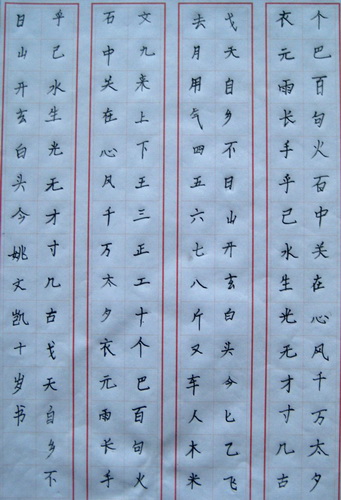 个巴百句火百中关在心风千万太夕
衣元雨长手乎己水生光无才寸几古
戈天自乡不日山开玄白头今匕乙飞
去月用气四五六七八片又车人木米
文九来上下王三正工十个巴百句火
石中关在心风千万太夕衣元雨长手
乎己水生光无才寸几古戈天自乡不
日山开玄白头今姚文凯十岁书